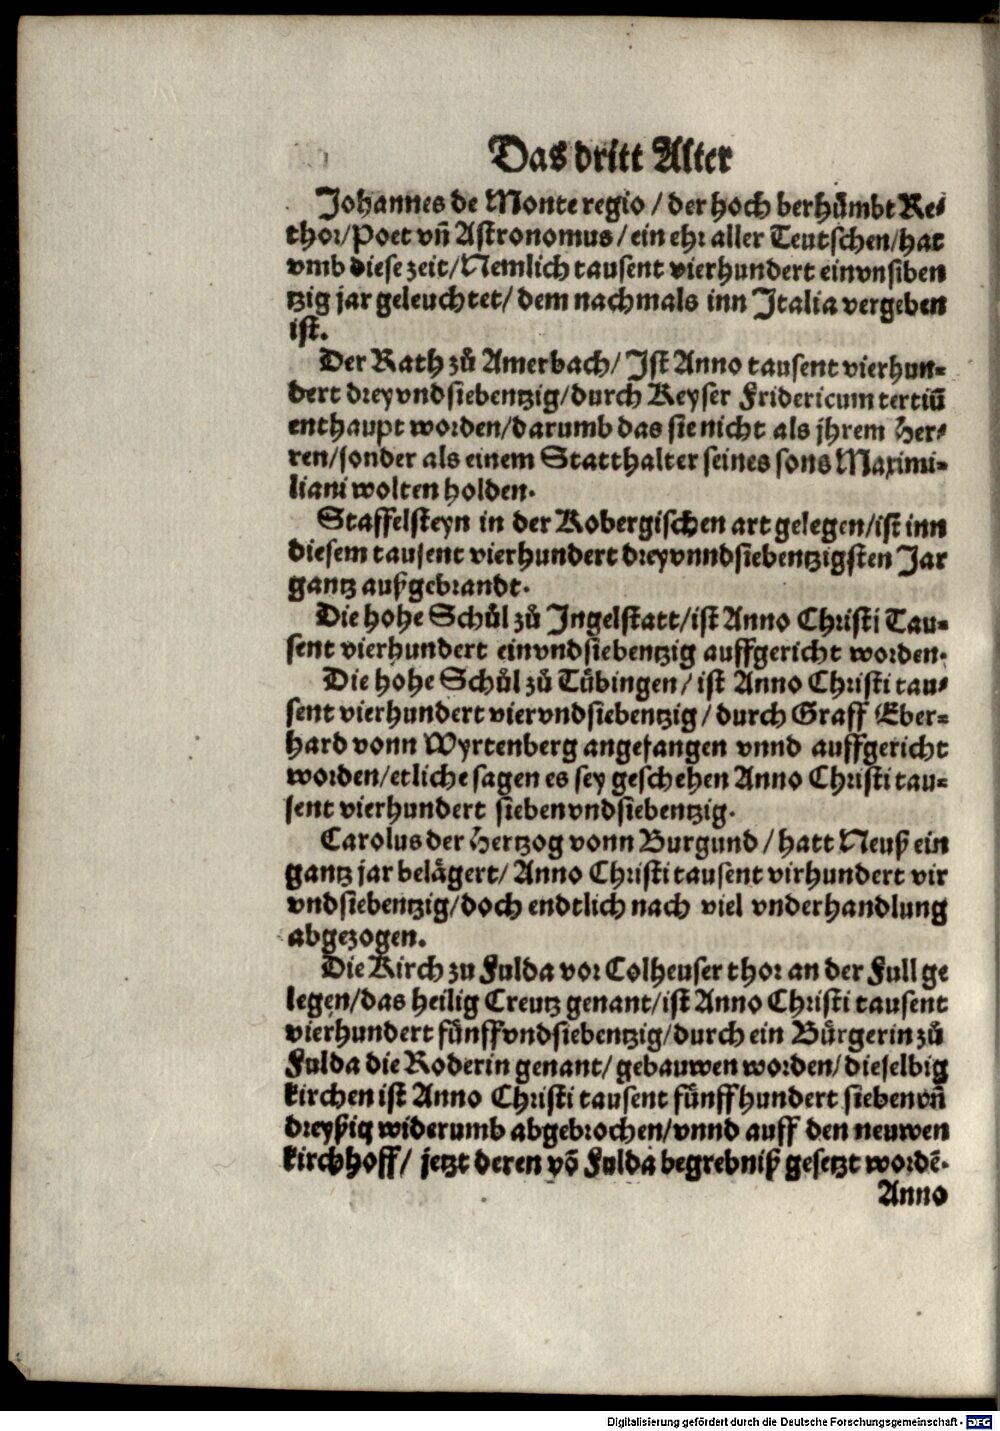 Das dritt Alter
Johannes de Monte regio / der hoch berhümbt Re⸗
thor/Poet vñ Astronomus / ein ehr aller Teutschen/hat
vmb diese zeit/Nemlich tausent vierhundert einvnsiben
tzig jar geleuchtet/ dem nachmals inn Italia vergeben
ist.
Der Rath zů Amerbach/ Ist Anno tausent vierhun⸗
dert dreyvndsiebentzig/durch Keyser Fridericum tertiū
enthaupt worden/darumb das sie nicht als jhrem Her⸗
ren/sonder als einem Statthalter seines sons Maximi⸗
liani wolten holden.
Staffelsteyn in der Kobergischen art gelegen/ist inn
diesem tausent vierhundert dreyvnndsiebentzigsten Jar
gantz außgebrandt.
Die hohe Schůl zů Ingelstatt/ist Anno Christi Tau⸗
sent vierhundert einvndsiebentzig auffgericht worden.
Die hohe Schůl zů Tübingen/ ist Anno Christi tau⸗
sent vierhundert viervndsiebentzig / durch Graff Eber⸗
hard vonn Wyrtenberg angefangen vnnd auffgericht
worden/etliche sagen es sey geschehen Anno Christi tau⸗
sent vierhundert siebenvndsiebentzig.
Carolus der Hertzog vonn Burgund / hatt Neuß ein
gantz jar belägert/ Anno Christi tausent virhundert vir
vndsiebentzig/doch endtlich nach viel vnderhandlung
abgezogen.
Die Kirch zu Fulda vor Colheuser thor an der Full ge
legen/das heilig Creutz genant/ist Anno Christi tausent
vierhundert fünffvndsiebentzig/durch ein Bürgerin zů
Fulda die Roderin genant/ gebauwen worden/dieselbig
kirchen ist Anno Christi tausent fünffhundert siebenvñ
dreyßig widerumb abgebrochen/vnnd auff den neuwen
kirchhoff/ jetzt deren võ Fulda begrebniß gesetzt wordẽ.
Anno
Digitalisierung gefördert durch die Deutsche Forschungsgemeinschaft - DFG